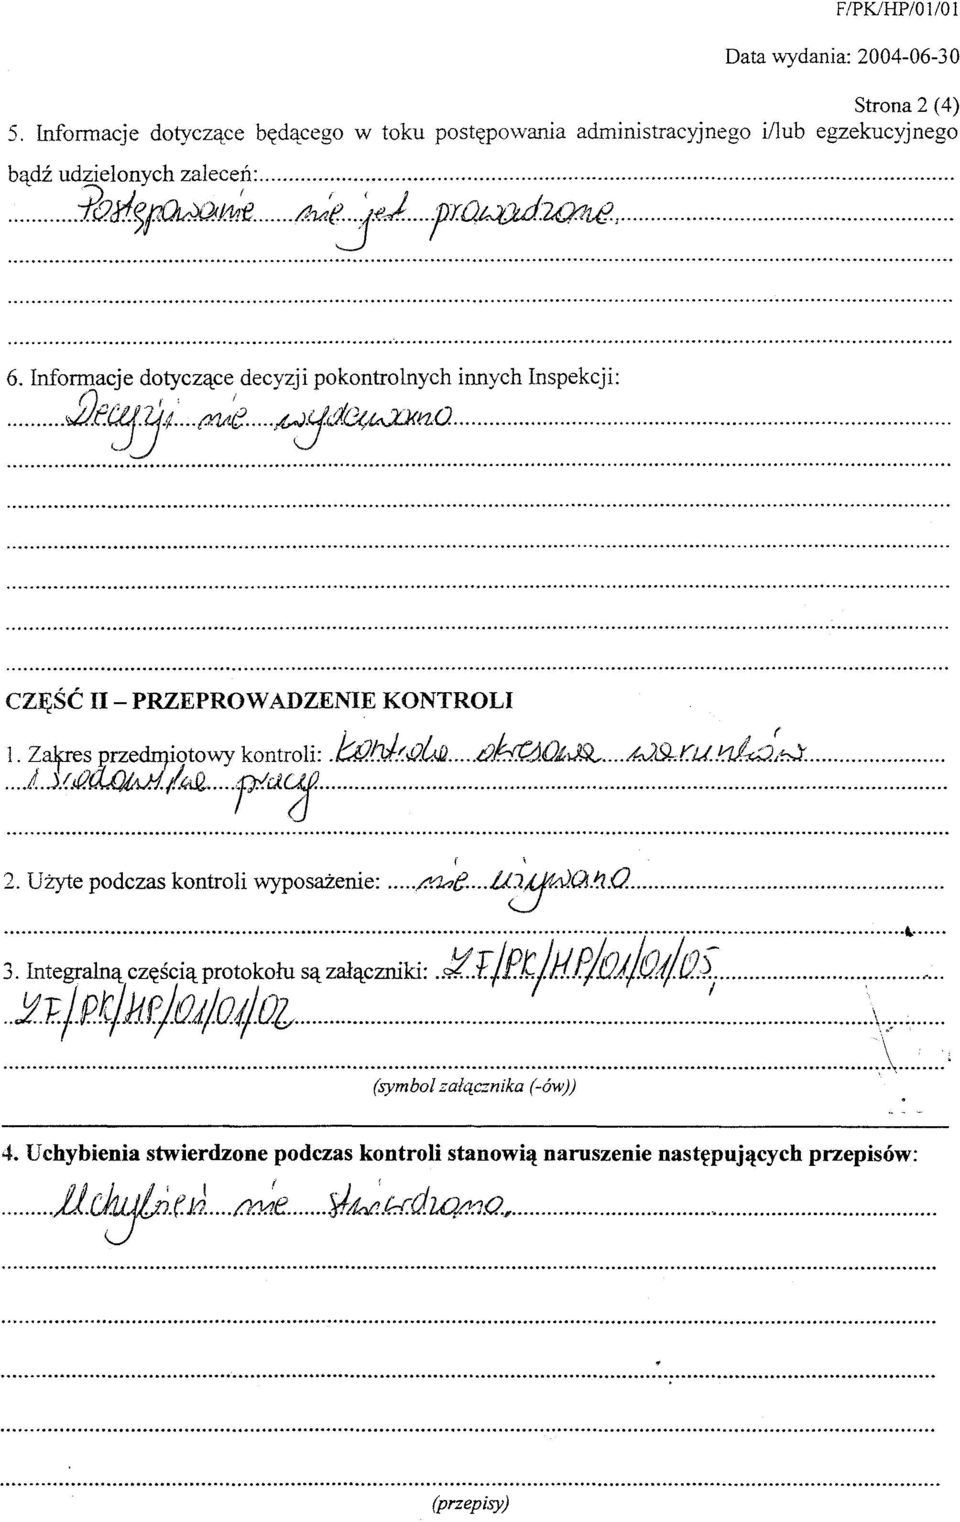 F/PK/HP/01/01
Data wydania: 2004-06-30
Strona 2 (4)
5. Informacje dotyczące będącego w toku postępowania administracyjnego i/lub egzekucyjnego
bądź udzielonych zaleceń:
Postępowanie nie jest prowadzone.
6. Informacje dotyczące decyzji pokontrolnych innych Inspekcji:
Decyzji nie wydawano
CZĘŚĆ II – PRZEPROWADZENIE KONTROLI
1. Zakres przedmiotowy kontroli: kontrola okresowa warunków
i środowiska pracy
2. Użyte podczas kontroli wyposażenie: nie używano
3. Integralną częścią protokołu są załączniki: F/PK/HP/01/01/05,
F/PK/HP/01/01/02
(symbol załącznika (-ów))
4. Uchybienia stwierdzone podczas kontroli stanowią naruszenie następujących przepisów:
Uchybień nie stwierdzono.
(przepisy)